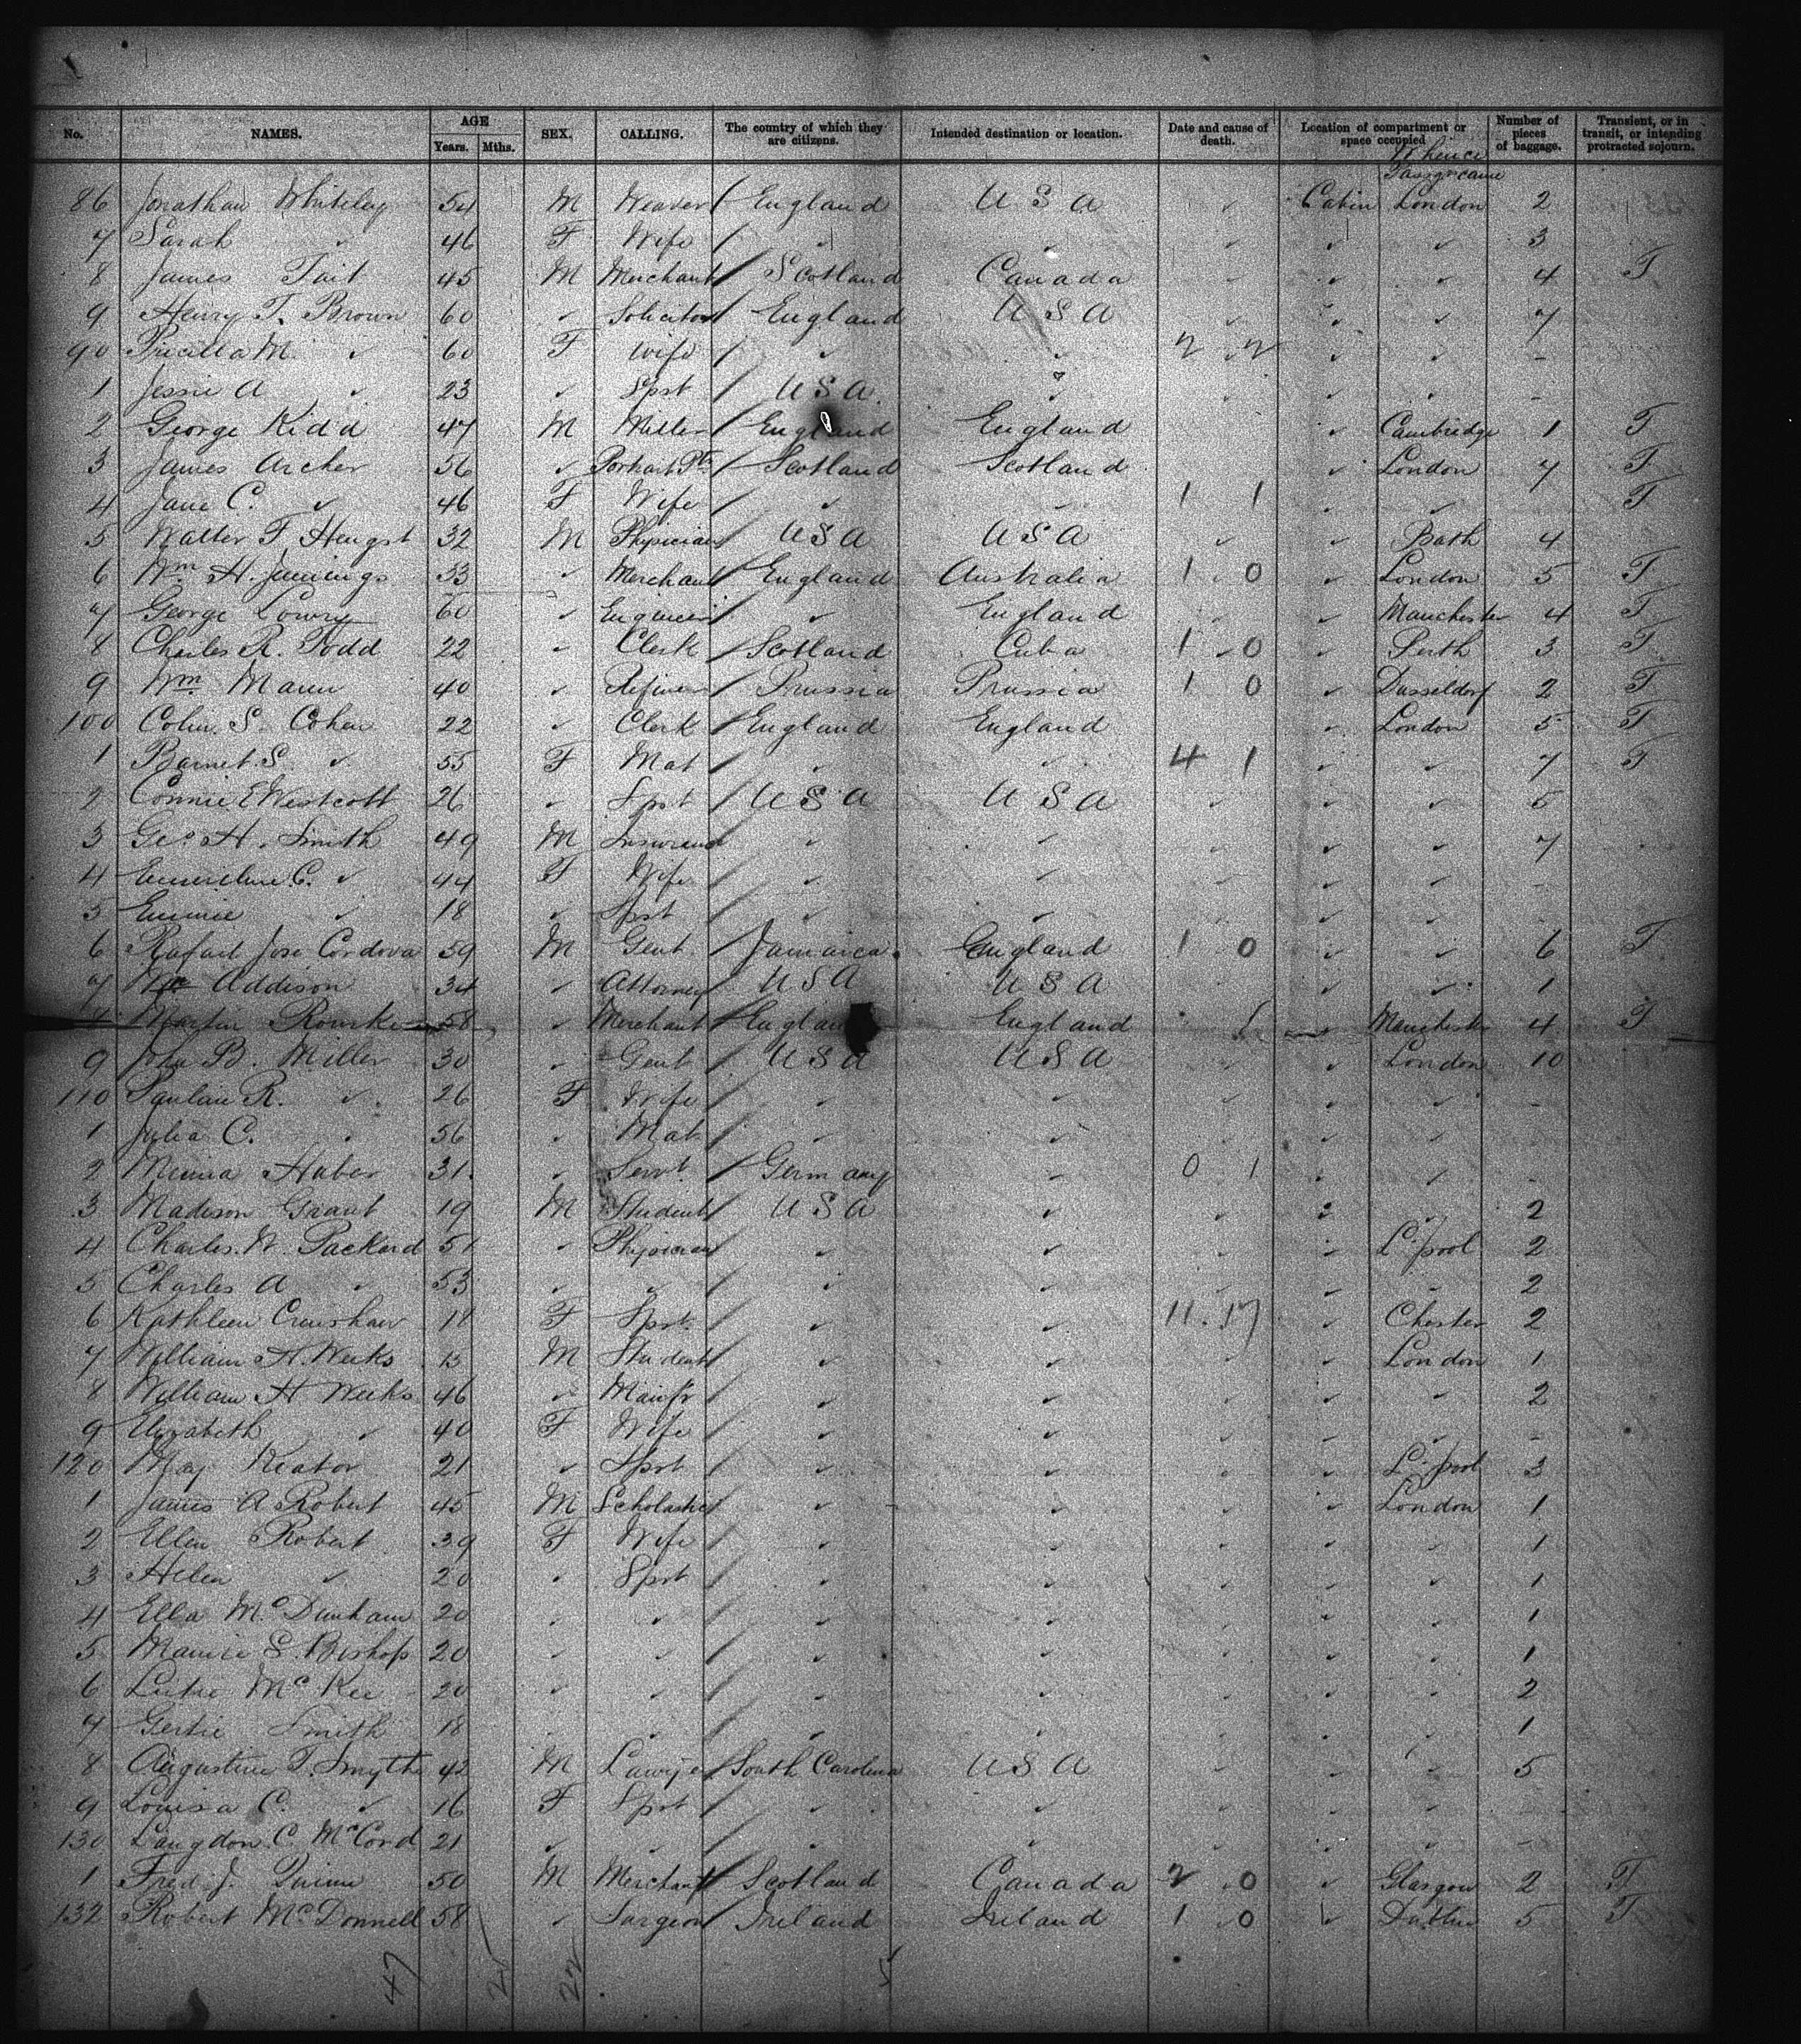 No. NAMES. AGE Years. Mths. SEX. CALLING. The country of which they are citizens. Intended destination or location. Date and cause of death. Location of compartment or space occupied Number of pieces of baggage. Transient, or in transit, or intending protracted sojourn.
Whence Passgr came
86 Jonathan Whiteley 54 M Weaver England U S A Cabin London 2
7 Sarah ✓ 46 F Wife ✓ ✓ ✓ ✓ 3
8 James Tait 45 M Merchant Scotland Canada ✓ ✓ 4 T
9 Henry T. Brown 60 ✓ Solicitor England U S A ✓ ✓ 7
90 Pricilla M. ✓ 60 F Wife ✓ ✓ 2 2 ✓ ✓ -
1 Jessie A ✓ 23 ✓ Spst U S A. ✓ ✓ ✓ -
2 George Kidd 47 M Miller England England ✓ Cambridge 1 T
3 James Archer 56 ✓ Portrait Ptr Scotland Scotland ✓ London 7 T
4 Jane C. ✓ 46 F Wife ✓ ✓ 1 1 ✓ ✓ T
5 Walter F Hengst 32 M Physician U S A U S A ✓ Bath 4
6 Wm H. Jennings 33 ✓ Merchant England Australia 1 0 ✓ London 5 T
7 George Lowry 60 ✓ Engineer ✓ England ✓ Manchester 4 T
8 Charles R. Todd 22 ✓ Clerk Scotland Cuba 1 0 ✓ Perth 3 T
9 Wm Mann 40 ✓ Refiner Prussia Prussia 1 0 ✓ Dusseldorf 2 T
100 Colin. S. Cohen 22 ✓ Clerk England England ✓ London 5 T
1 Barnet. S. ✓ 55 F Mat ✓ ✓ 4 1 ✓ ✓ 7 T
2 Connie E Westcott 26 ✓ Spst U S A U S A ✓ ✓ 5
3 Geo H. Smith 49 M ✓ ✓ ✓ ✓ 7
4 Emeline C. ✓ 44 F Wife ✓ ✓ ✓ ✓ -
5 Emmie ✓ 18 ✓ Spst ✓ ✓ ✓ ✓
6 Rafael Jose Cordova 59 M Gent Jamaica England 1 0 ✓ ✓ 6 T
7 Addison 34 ✓ Attorney U S A U S A ✓ ✓ 1
Martin Rourke 58 ✓ Merchant England England ✓ Manchester 4 T
9 John B. Miller 30 ✓ Gent U S A U S A ✓ London 10
110 Pauline R. ✓ 26 F Wife ✓ ✓ ✓ ✓ -
1 Julia C. ✓ 56 ✓ Mat ✓ ✓ ✓ ✓
2 Minna Huber 31 ✓ Servt Germany ✓ 0 1 ✓ ✓ -
3 Madison Grant 19 M Student U S A ✓ ✓ 2
4 Charles. W. Packard 51 ✓ Physician ✓ ✓ ✓ L'pool 2
5 Charles A ✓ 53 ✓ ✓ ✓ ✓ ✓ ✓ 2
6 Kathleen Crenshaw 18 F Spst. ✓ ✓ 11. 17 ✓ Chester 2
7 William H. Weeks 13 M Student ✓ ✓ ✓ London 1
8 William H Weeks 46 ✓ Manfr ✓ ✓ ✓ ✓ 2
9 Elizabeth ✓ 40 F Wife ✓ ✓ ✓ ✓ -
120 May Keator 21 ✓ Spst ✓ ✓ ✓ L'pool 3
1 James A Robert 45 M Scholastic ✓ ✓ ✓ London 1
2 Ellen Robert 39 F Wife ✓ ✓ ✓ ✓ 1
3 Helen ✓ 20 ✓ Spst ✓ ✓ ✓ ✓ 1
4 Ella Mc Dunham 20 ✓ ✓ ✓ ✓ ✓ ✓ 1
5 S. Bishop 20 ✓ ✓ ✓ ✓ ✓ ✓ 1
6 Mc Kee 20 ✓ ✓ ✓ ✓ ✓ ✓ 2
7 Gertie Smith 18 ✓ ✓ ✓ ✓ ✓ ✓ 1
8 Augustine T. Smythe 42 M Lawyer South Carolina U S A ✓ ✓ 5
9 Louisa C. ✓ 16 F Spst ✓ ✓ ✓ ✓
130 Langdon. C. McCord 21 ✓ ✓ ✓ ✓ ✓ ✓ -
1 Fred J. Quinn 50 M Merchant Scotland Canada 2 0 ✓ Glasgow 2 T
132 Robert McDonnell 58 ✓ Surgeon Ireland Ireland 1 0 ✓ Dublin 5 T
47 25 22